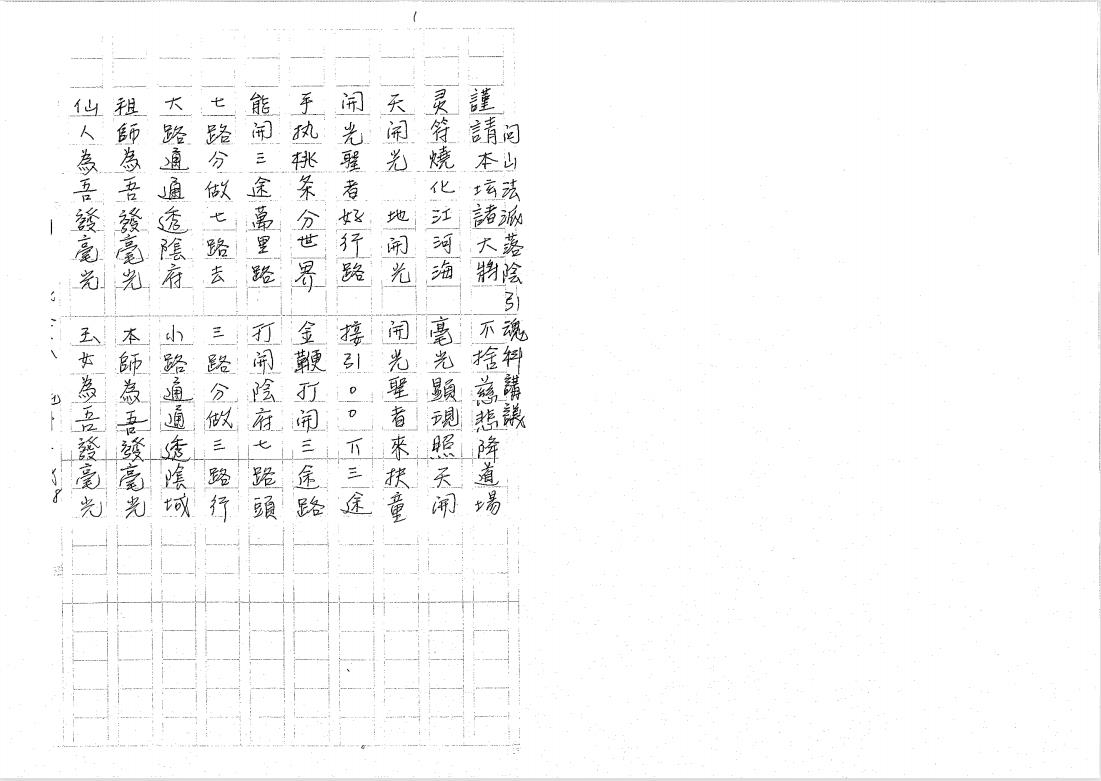 1
閭山法派落陰引魂科講議
謹請本坛諸大將 不捨慈悲降道場
灵符燒化江河海 毫光顯現照天開
天開光 地開光 開光聖者來扶童
開光聖者好行路 接引○○下三途
手执桃条分世界 金鞭打開三途路
能開三途萬里路 打開陰府七路頭
七路分做七路去 三路分做三路行
大路通通透陰府 小路通通透陰城
祖師為吾發毫光 本師為吾發毫光
仙人為吾發毫光 玉女為吾發毫光